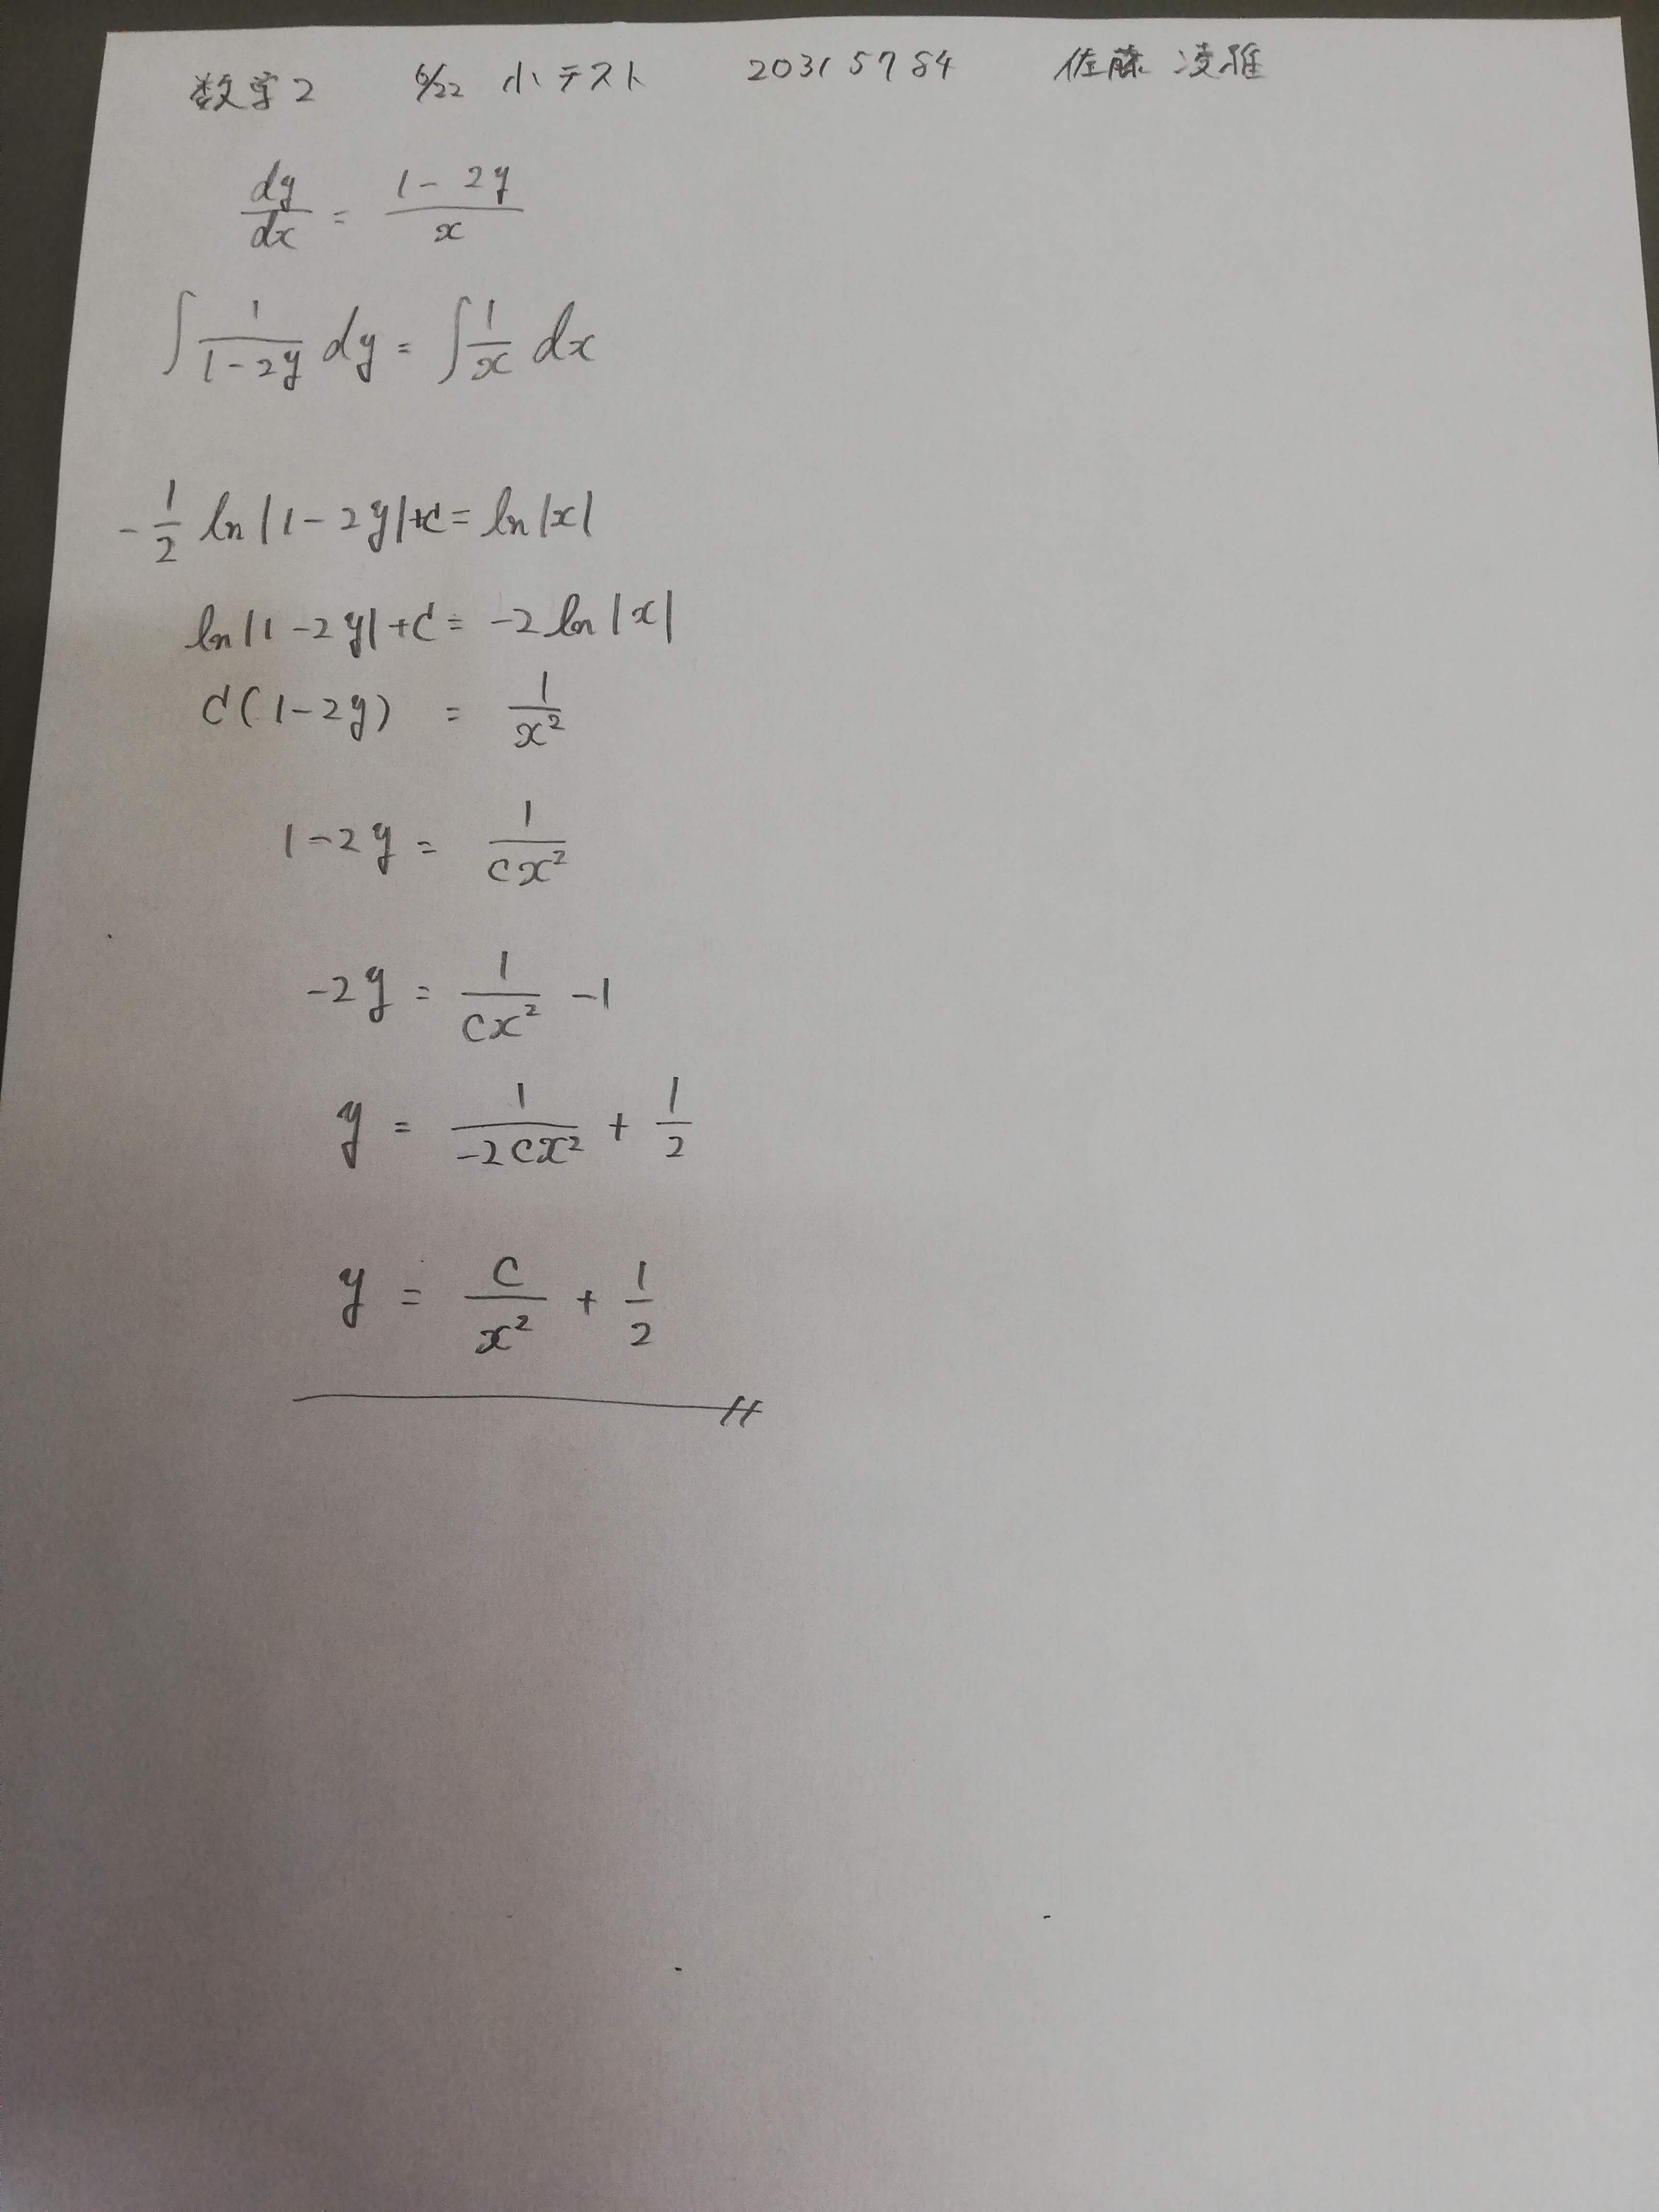 数学2 6/22 小テスト 20315784 佐藤 凌雅
dy/dx = (1-2y)/x
∫ 1/(1-2y) dy = ∫ 1/x dx
-1/2 ln|1-2y|+C = ln|x|
ln|1-2y|+C = -2 ln|x|
C(1-2y) = 1/x²
1-2y = 1/(Cx²)
-2y = 1/(Cx²) -1
y = 1/(-2Cx²) + 1/2
y = C/x² + 1/2